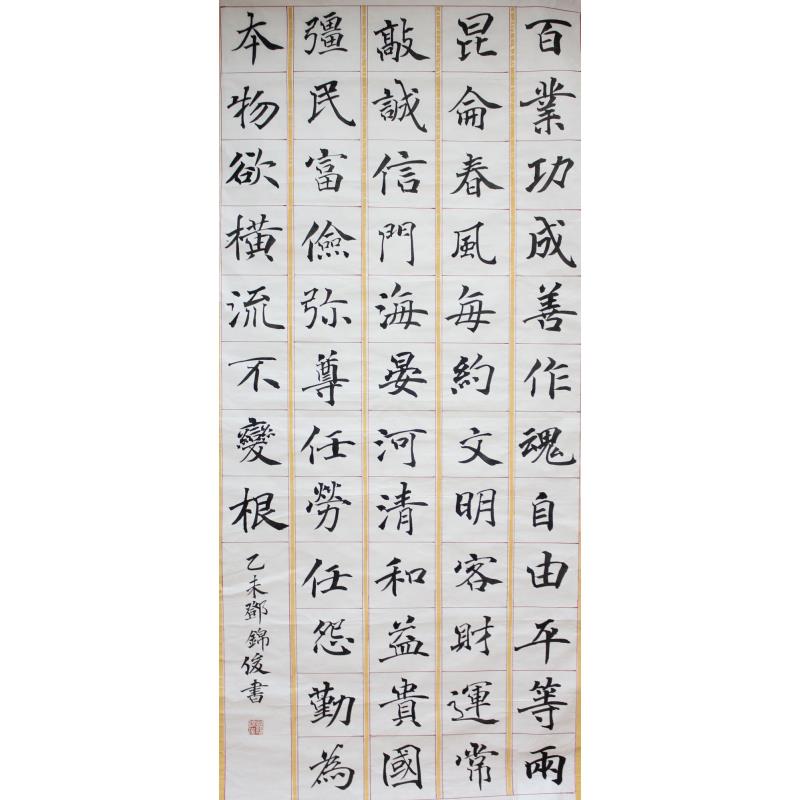 百業功成善作魂自由平等兩
昆侖春風每約文明客財運常
敲誠信門海晏河清和益貴國
彊民富儉弥尊任勞任怨勤為
本物欲橫流不變根
乙未鄧錦俊書